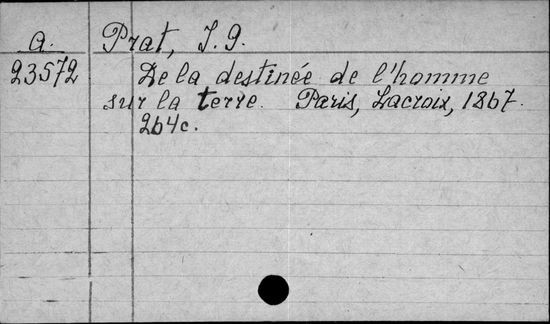 A. Prat, J. G.
23572 De la destinée de l'homme
sur la terre. Paris, Lacroix, 1867.
264c.